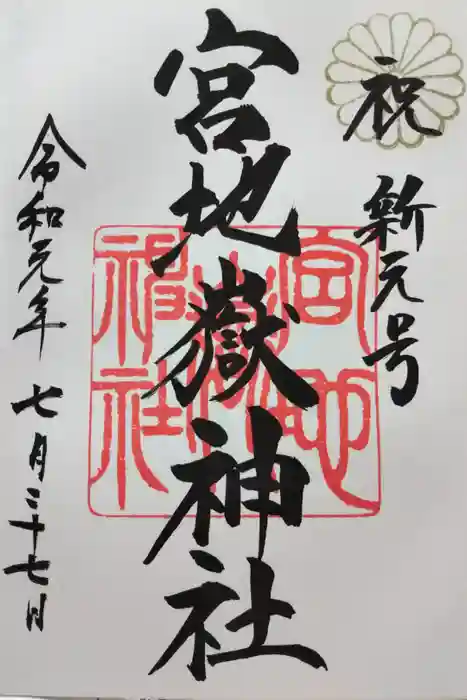 祝
新元号
宮地嶽神社
宮地嶽神社
令和元年七月二十七日